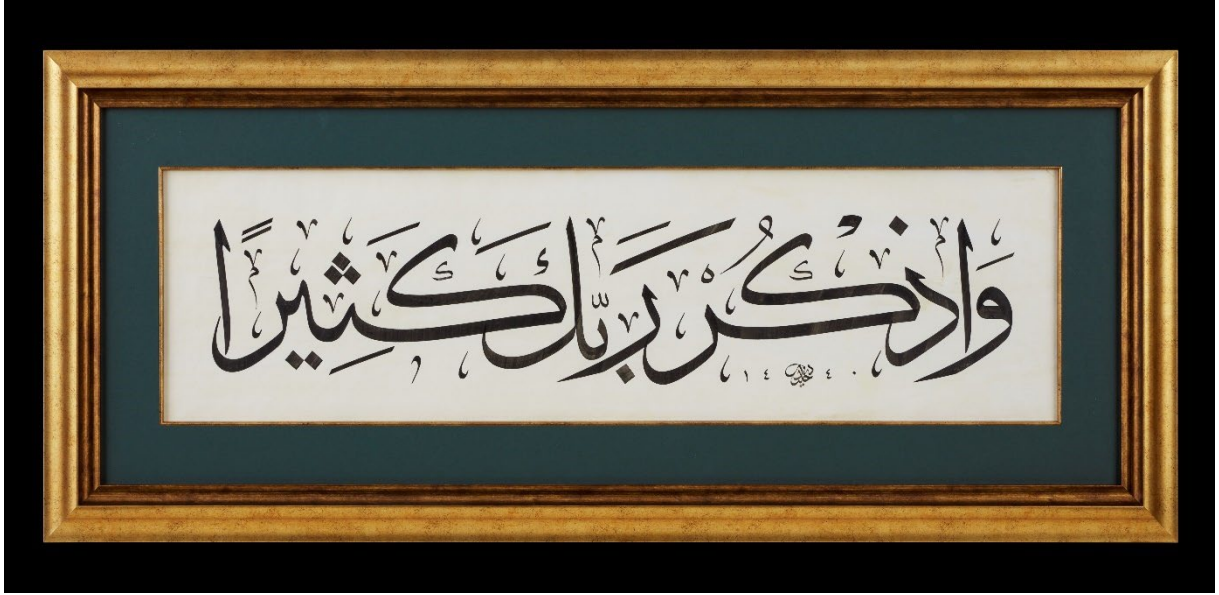 وَاذْكُرْ رَبَّكَ كَثِيرًا
١٤٤٠